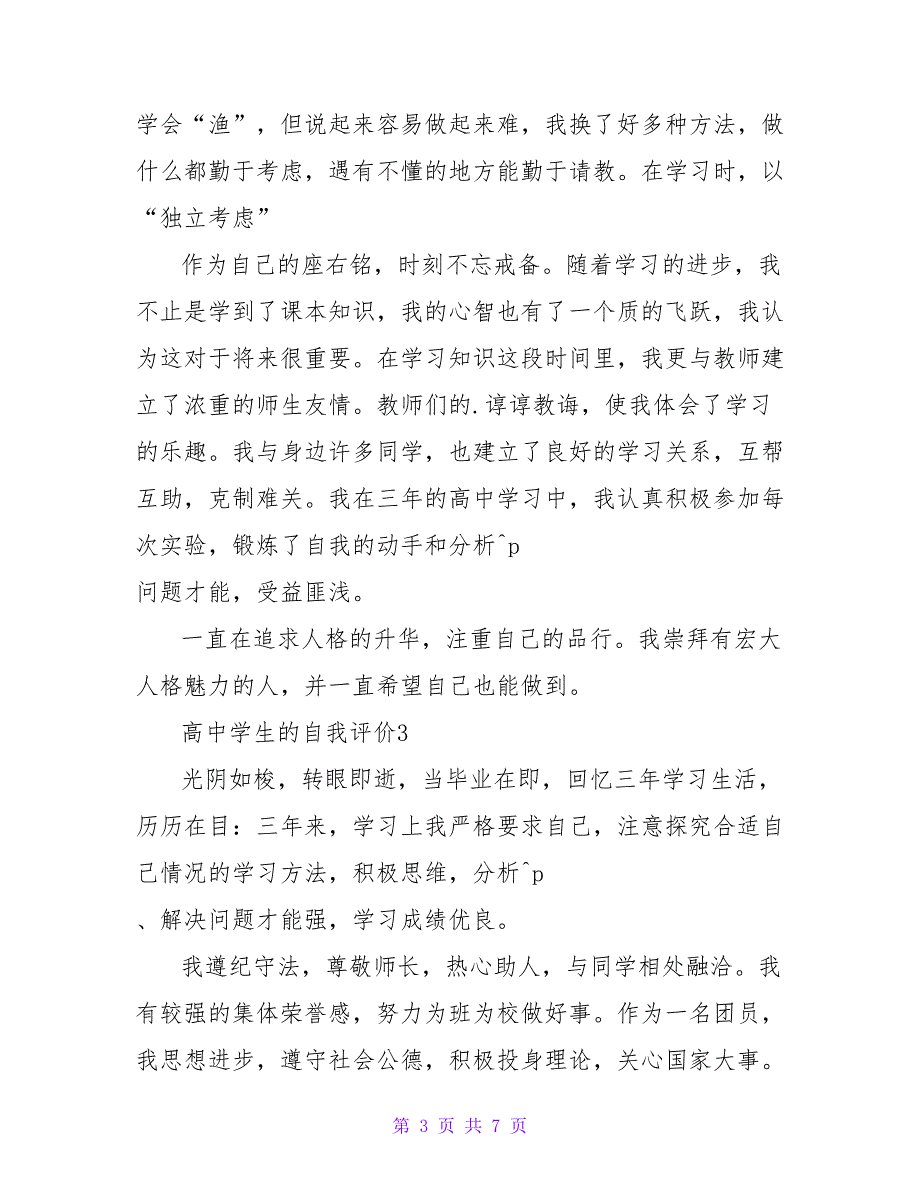 学会“渔”，但说起来容易做起来难，我换了好多种方法，做
什么都勤于考虑，遇有不懂的地方能勤于请教。在学习时，以
“独立考虑”
作为自己的座右铭，时刻不忘戒备。随着学习的进步，我
不止是学到了课本知识，我的心智也有了一个质的飞跃，我认
为这对于将来很重要。在学习知识这段时间里，我更与教师建
立了浓重的师生友情。教师们的.谆谆教诲，使我体会了学习
的乐趣。我与身边许多同学，也建立了良好的学习关系，互帮
互助，克制难关。我在三年的高中学习中，我认真积极参加每
次实验，锻炼了自我的动手和分析^p
问题才能，受益匪浅。
一直在追求人格的升华，注重自己的品行。我崇拜有宏大
人格魅力的人，并一直希望自己也能做到。
高中学生的自我评价3
光阴如梭，转眼即逝，当毕业在即，回忆三年学习生活，
历历在目：三年来，学习上我严格要求自己，注意探究合适自
己情况的学习方法，积极思维，分析^p
、解决问题才能强，学习成绩优良。
我遵纪守法，尊敬师长，热心助人，与同学相处融洽。我
有较强的集体荣誉感，努力为班为校做好事。作为一名团员，
我思想进步，遵守社会公德，积极投身理论，关心国家大事。
第 3 页 共 7 页